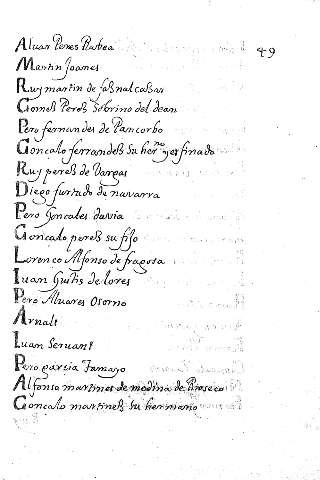 49
Aluar Peres Rubea
Martin Joanes
Ruy martin de
Gomes Peres sobrino del dean
Pero fernandes de Pancorbo
Gonçalo ferrandes su herno yes finado
Ruy peres de Vargas
Diego furtado de navarra
Pero Gonçales dauia
Gonçalo peres su fijo
Lorenco Alfonso de fragosa
Iuan de lores
Pero Aluares Osorno
Arnalt
Iuan Seruant
Pero garcia Tamayo
Alfonso martines de medina de Rioseco
Gonçalo martines su hermano